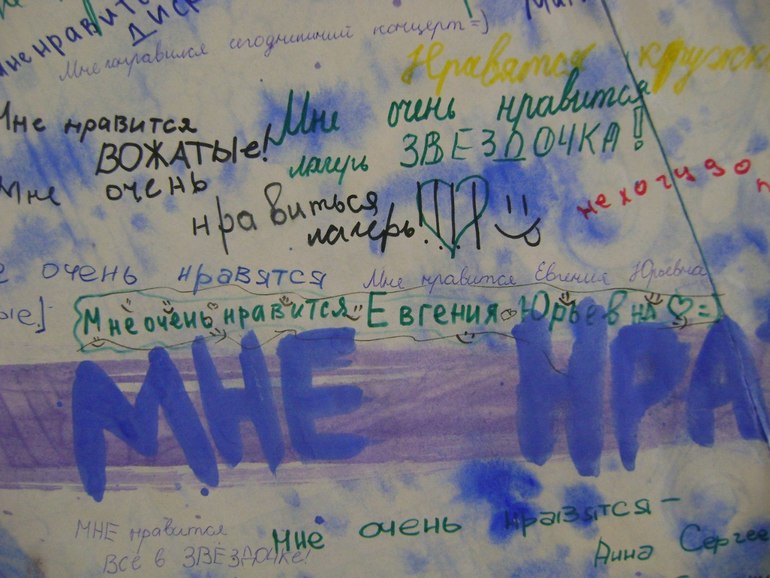 мне нравит
ДИСК
Мне понравился сегодняшний концерт =)
Нравятся кружк
Мне нравится
ВОЖАТЫЕ!
Мне очень нравится
лагерь ЗВЕЗДОЧКА!
Мне очень
нравиться
лагерь!!
не хочу до
очень нравятся
Мне нравится Евгения Юрьевна
ые:]
Мне очень нравится Евгения Юрьевна ♡ =)
МНЕ НРА
МНЕ нравится
Всё в ЗВЁЗДОЧКЕ!
Мне очень нравятся -
Анна Сергее